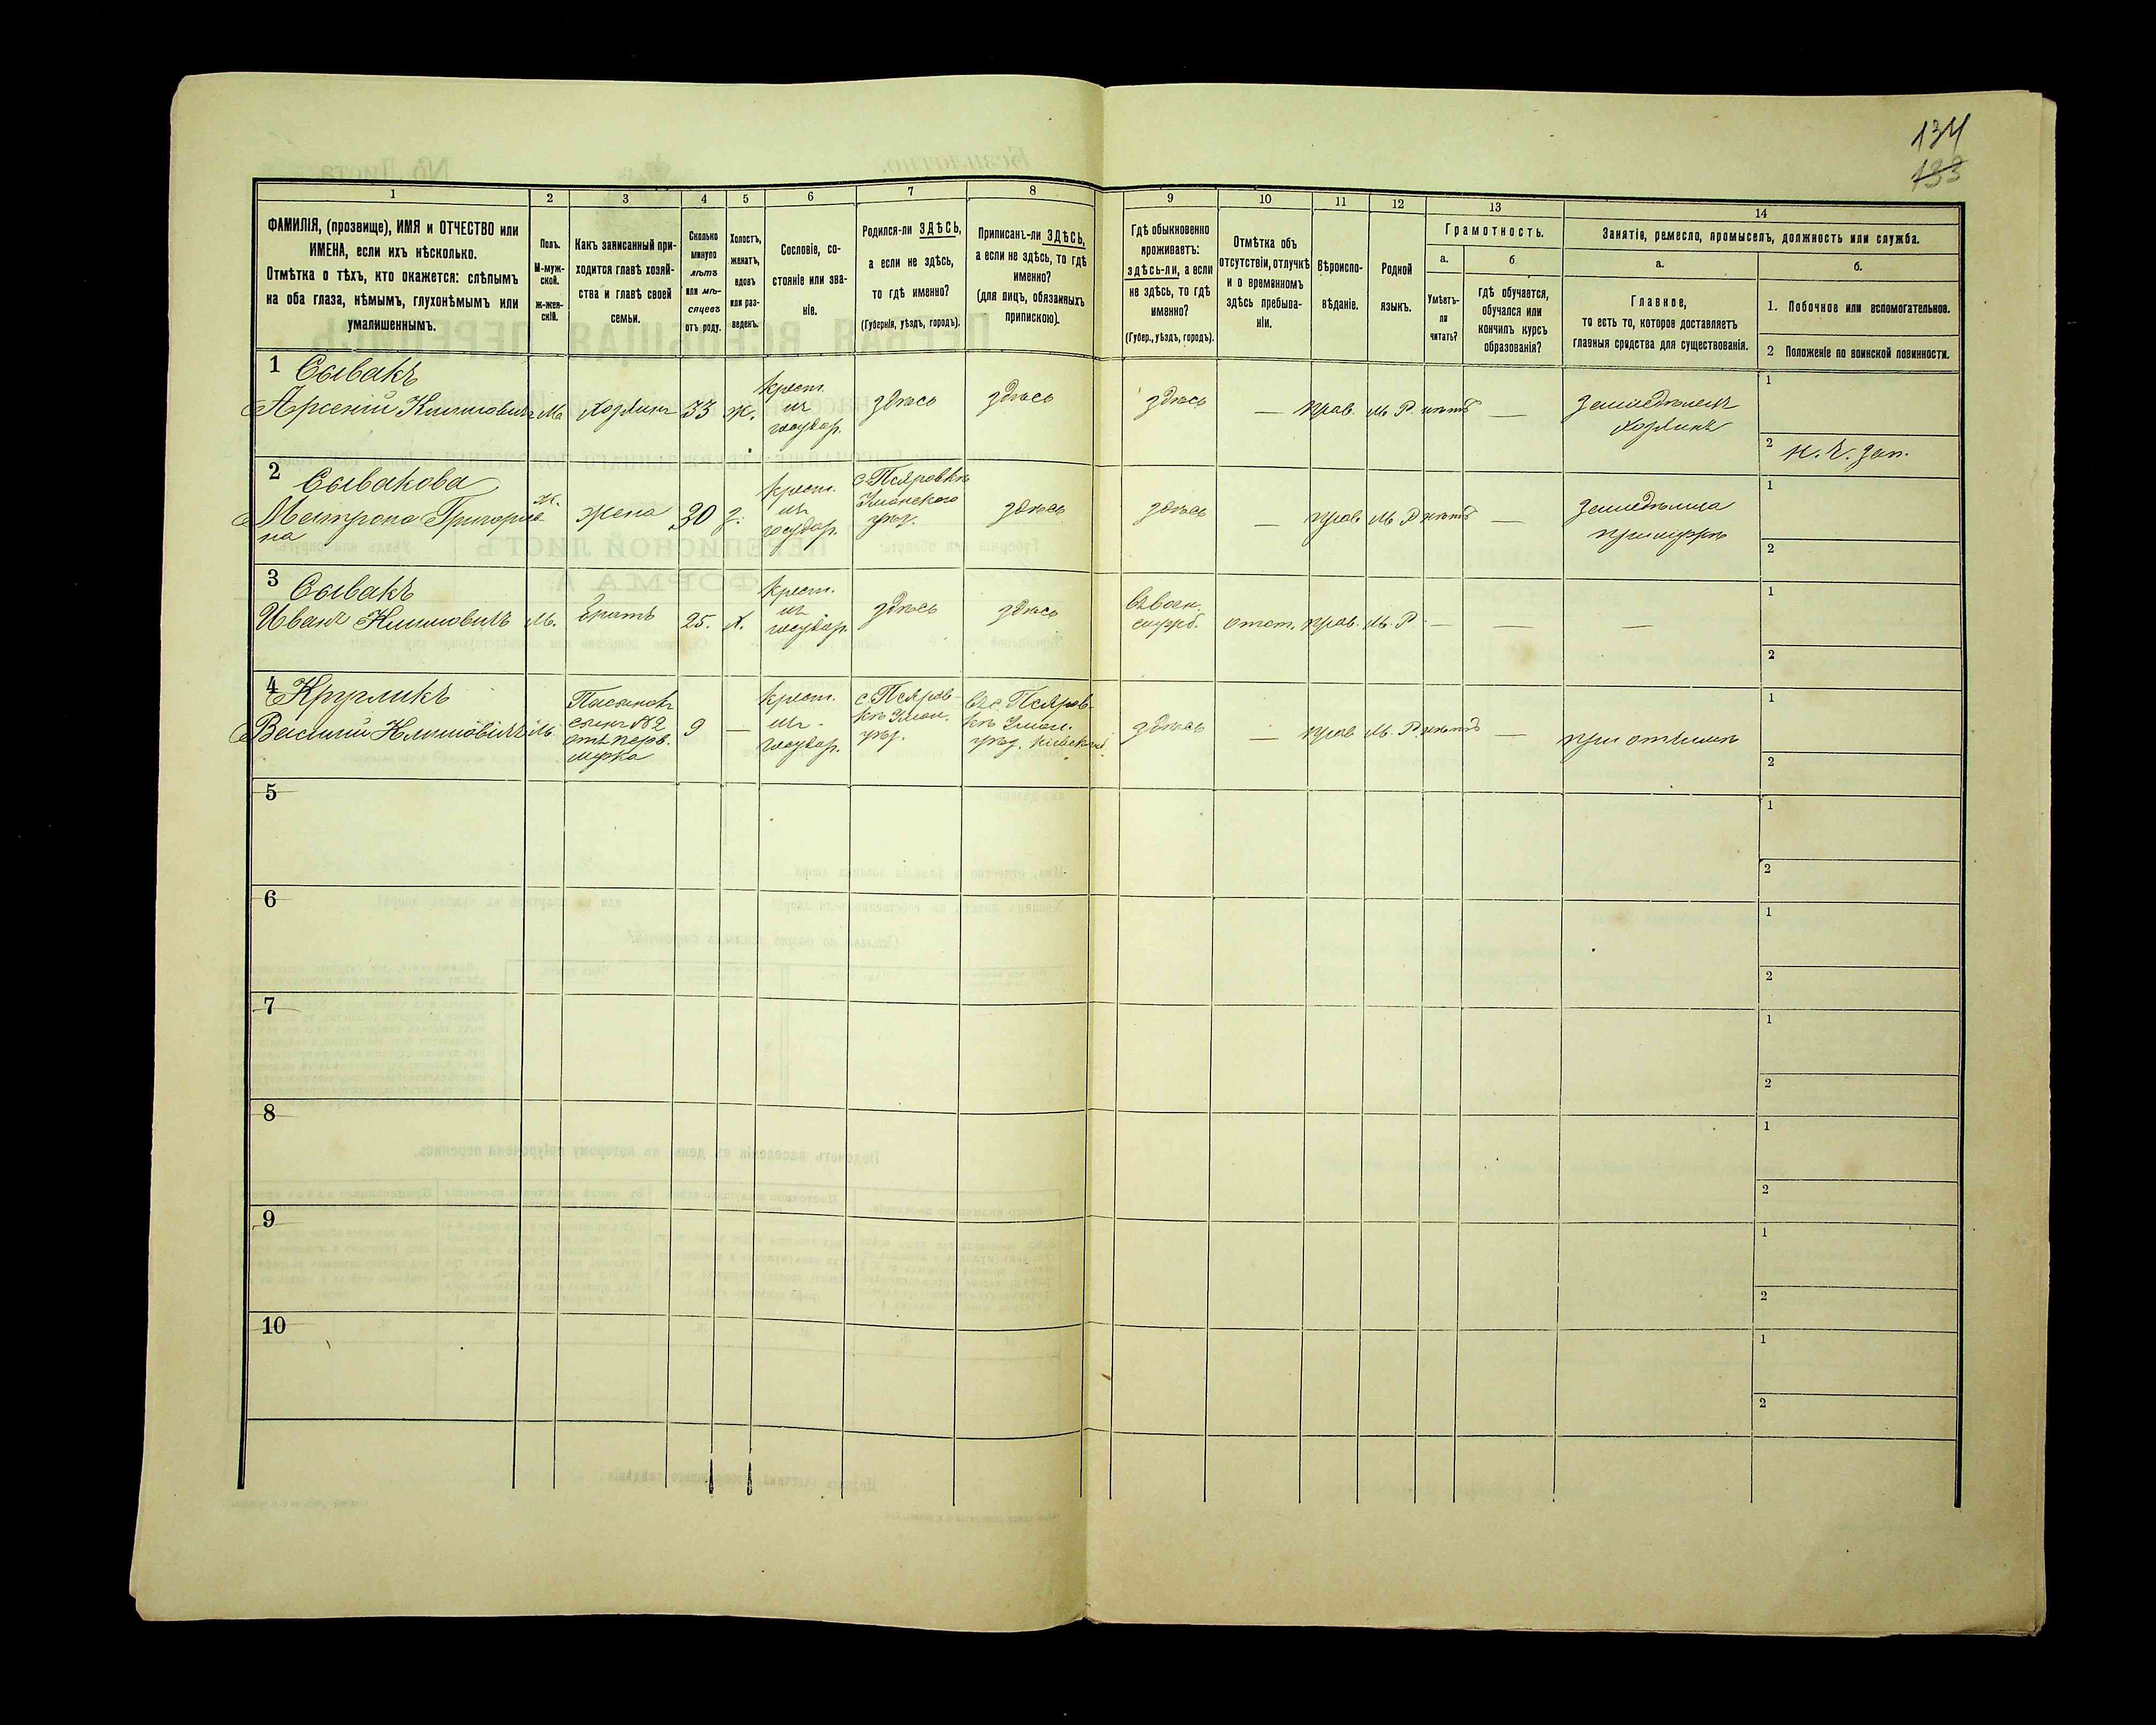 134
133
1 2 3 4 5 6 7 8 9 10 11 12 13 14
ФАМИЛІЯ, (прозвище), ИМЯ и ОТЧЕСТВО или
ИМЕНА, если ихъ нѣсколько.
Отмѣтка о тѣхъ, кто окажется: слѣпымъ
на оба глаза, нѣмымъ, глухонѣмымъ или
умалишеннымъ.
Полъ.
М-муж-
ской.
ж-жен-
скій.
Какъ записанный при-
ходится главѣ хозяй-
ства и главѣ своей
семьи.
Сколько
минуло
лѣтъ
или мѣ-
сяцевъ
отъ роду.
Холостъ,
женатъ,
вдовъ
или раз-
веденъ.
Сословіе, со-
стояніе или зва-
ніе.
Родился-ли ЗДѢСЬ,
а если не здѣсь,
то гдѣ именно?
(Губернія, уѣздъ, городъ).
Приписанъ-ли ЗДѢСЬ,
а если не здѣсь, то гдѣ
именно?
(для лицъ, обязанныхъ
припискою).
Гдѣ обыкновенно
проживаетъ:
здѣсь-ли, а если
не здѣсь, то гдѣ
именно?
(Губер., уѣздъ, городъ).
Отмѣтка объ
отсутствіи, отлучкѣ
и о временномъ
здѣсь пребыва-
ніи.
Вѣроиспо-
вѣданіе.
Родной
языкъ.
Грамотность.
а.
Умѣетъ-
ли
читать?
б
гдѣ обучается,
обучался или
кончилъ курсъ
образованія?
Занятіе, ремесло, промыселъ, должность или служба.
а.
Главное,
то есть то, которое доставляетъ
главныя средства для существованія.
б.
1. Побочное или вспомогательное.
2 Положеніе по воинской повинности.
1 Сывакъ
Арсеній Климовичъ
М.
Хозяинъ
33
ж.
Крест.
изъ
государ.
здѣсь
здѣсь
здѣсь
—
прав.
М. Р.
нѣтъ
—
Земледѣлецъ
хозяинъ
1
2 н. ч. зап.
2 Сывакова
Матрона Григорьев
на
ж.
жена
30
з.
Крест.
изъ
государ.
с. Псяровкѣ
Уманского
уѣзд.
здѣсь
здѣсь
—
прав
М. Р
нѣтъ
—
Земледѣлица
при мужѣ
1
2
3 Сывакъ
Иванъ Климовичъ
М.
братъ
25.
х.
Крест.
изъ
государ.
здѣсь
здѣсь
въ воен.
службѣ.
отст.
прав.
М. Р
—
—
—
1
2
4 Круликъ
Василий Климовичъ
М.
Пасынокъ
сынъ №2
отъ перв.
мужа
9
—
Крест.
изъ
государ.
с. Псяров-
кѣ Уман.
уѣзд.
въ с. Псяров-
кѣ Уман.
уѣзд. Кіевской
здѣсь
—
прав
М. Р.
нѣтъ
—
при отчимѣ
1
2
5
1
2
6
1
2
7
1
2
8
1
2
9
1
2
10
1
2